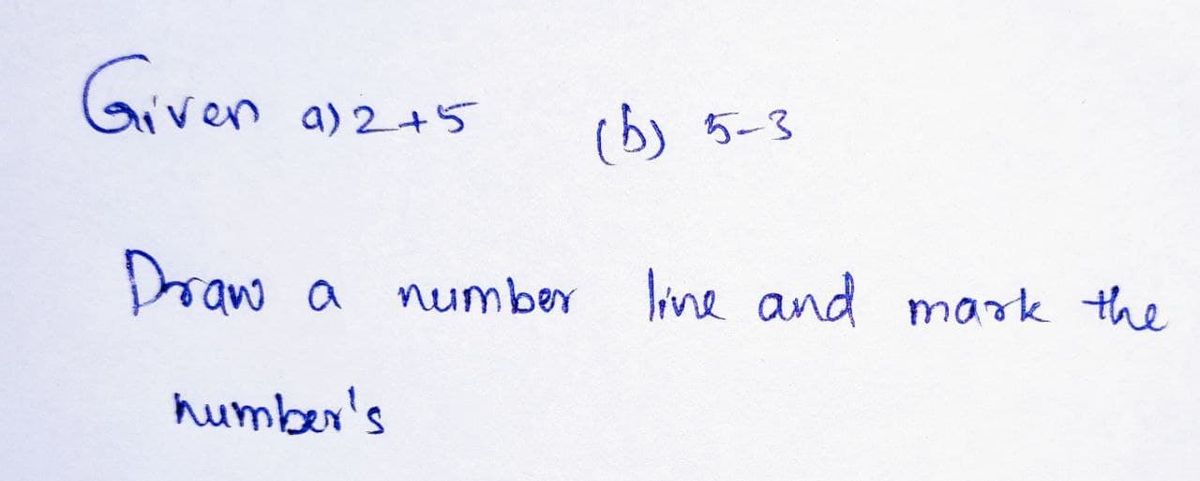 Given a) 2+5 (b) 5-3
Draw a number line and mark the
number's